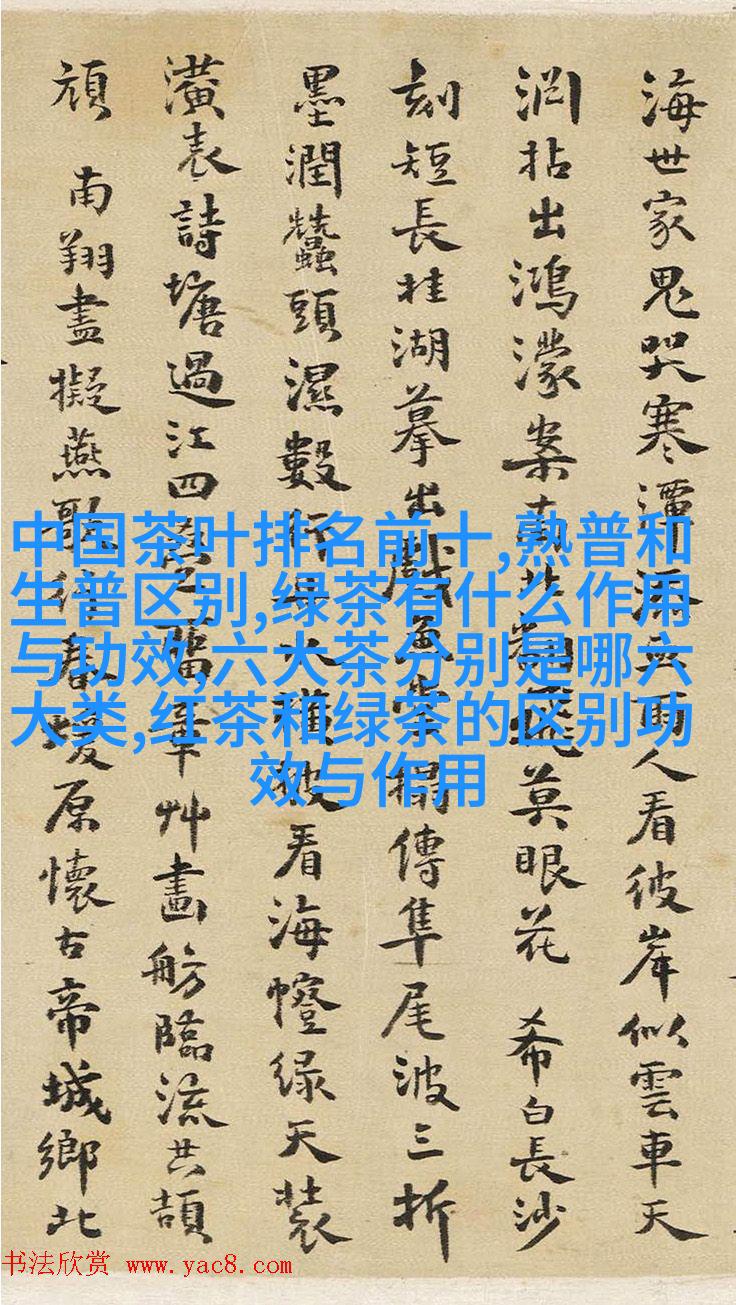 海世家鬼哭寒潭人看彼岸似雲車天
拈出鴻濛案南北翻飛莫眼花 希白長沙
刻短長桂湖摹出戲魚堂搨傳隼尾波三折
墨潤蠶頭濕數行大橫披看海幢綠天裝
潢表詩塘過江四章艸畫舫臨流共頡
頏 南翔盡擬燕歌春原懷古帝城鄉北
中国茶叶排名前十,熟普和
生普区别,绿茶有什么作用
与功效,六大茶分别是哪六
大类,红茶和绿茶的区别功
效与作用
书法欣赏 www.yac8.com